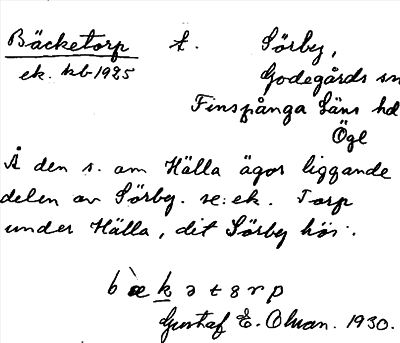 Bäcketorp t. Sörby,
ek. kb 1925 Godegårds sn
Finspånga Läns hd
Ögl
Å den s. om Hälla ägor liggande
delen av Sörby. se: ek. Torp
under Hälla, dit Sörby hör.
b æ̀ k ə t s r p
Gustaf E. Olson. 1930.